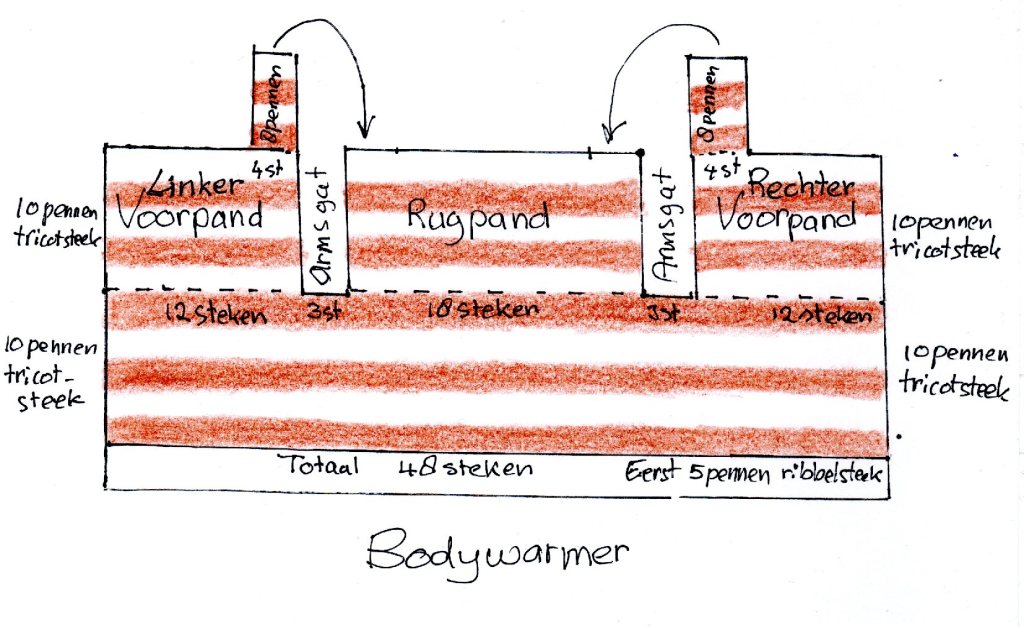 8 pennen
8 pennen
4 st
4 st
Linker
Voorpand
Armsgat
Rugpand
Armsgat
Rechter
Voorpand
10 pennen
tricotsteek
10 pennen
tricotsteek
12 steken
3 st
18 steken
3 st
12 steken
10 pennen
tricot-
steek
10 pennen
tricotsteek
Totaal 48 steken
Eerst 5 pennen ribbelsteek
Bodywarmer